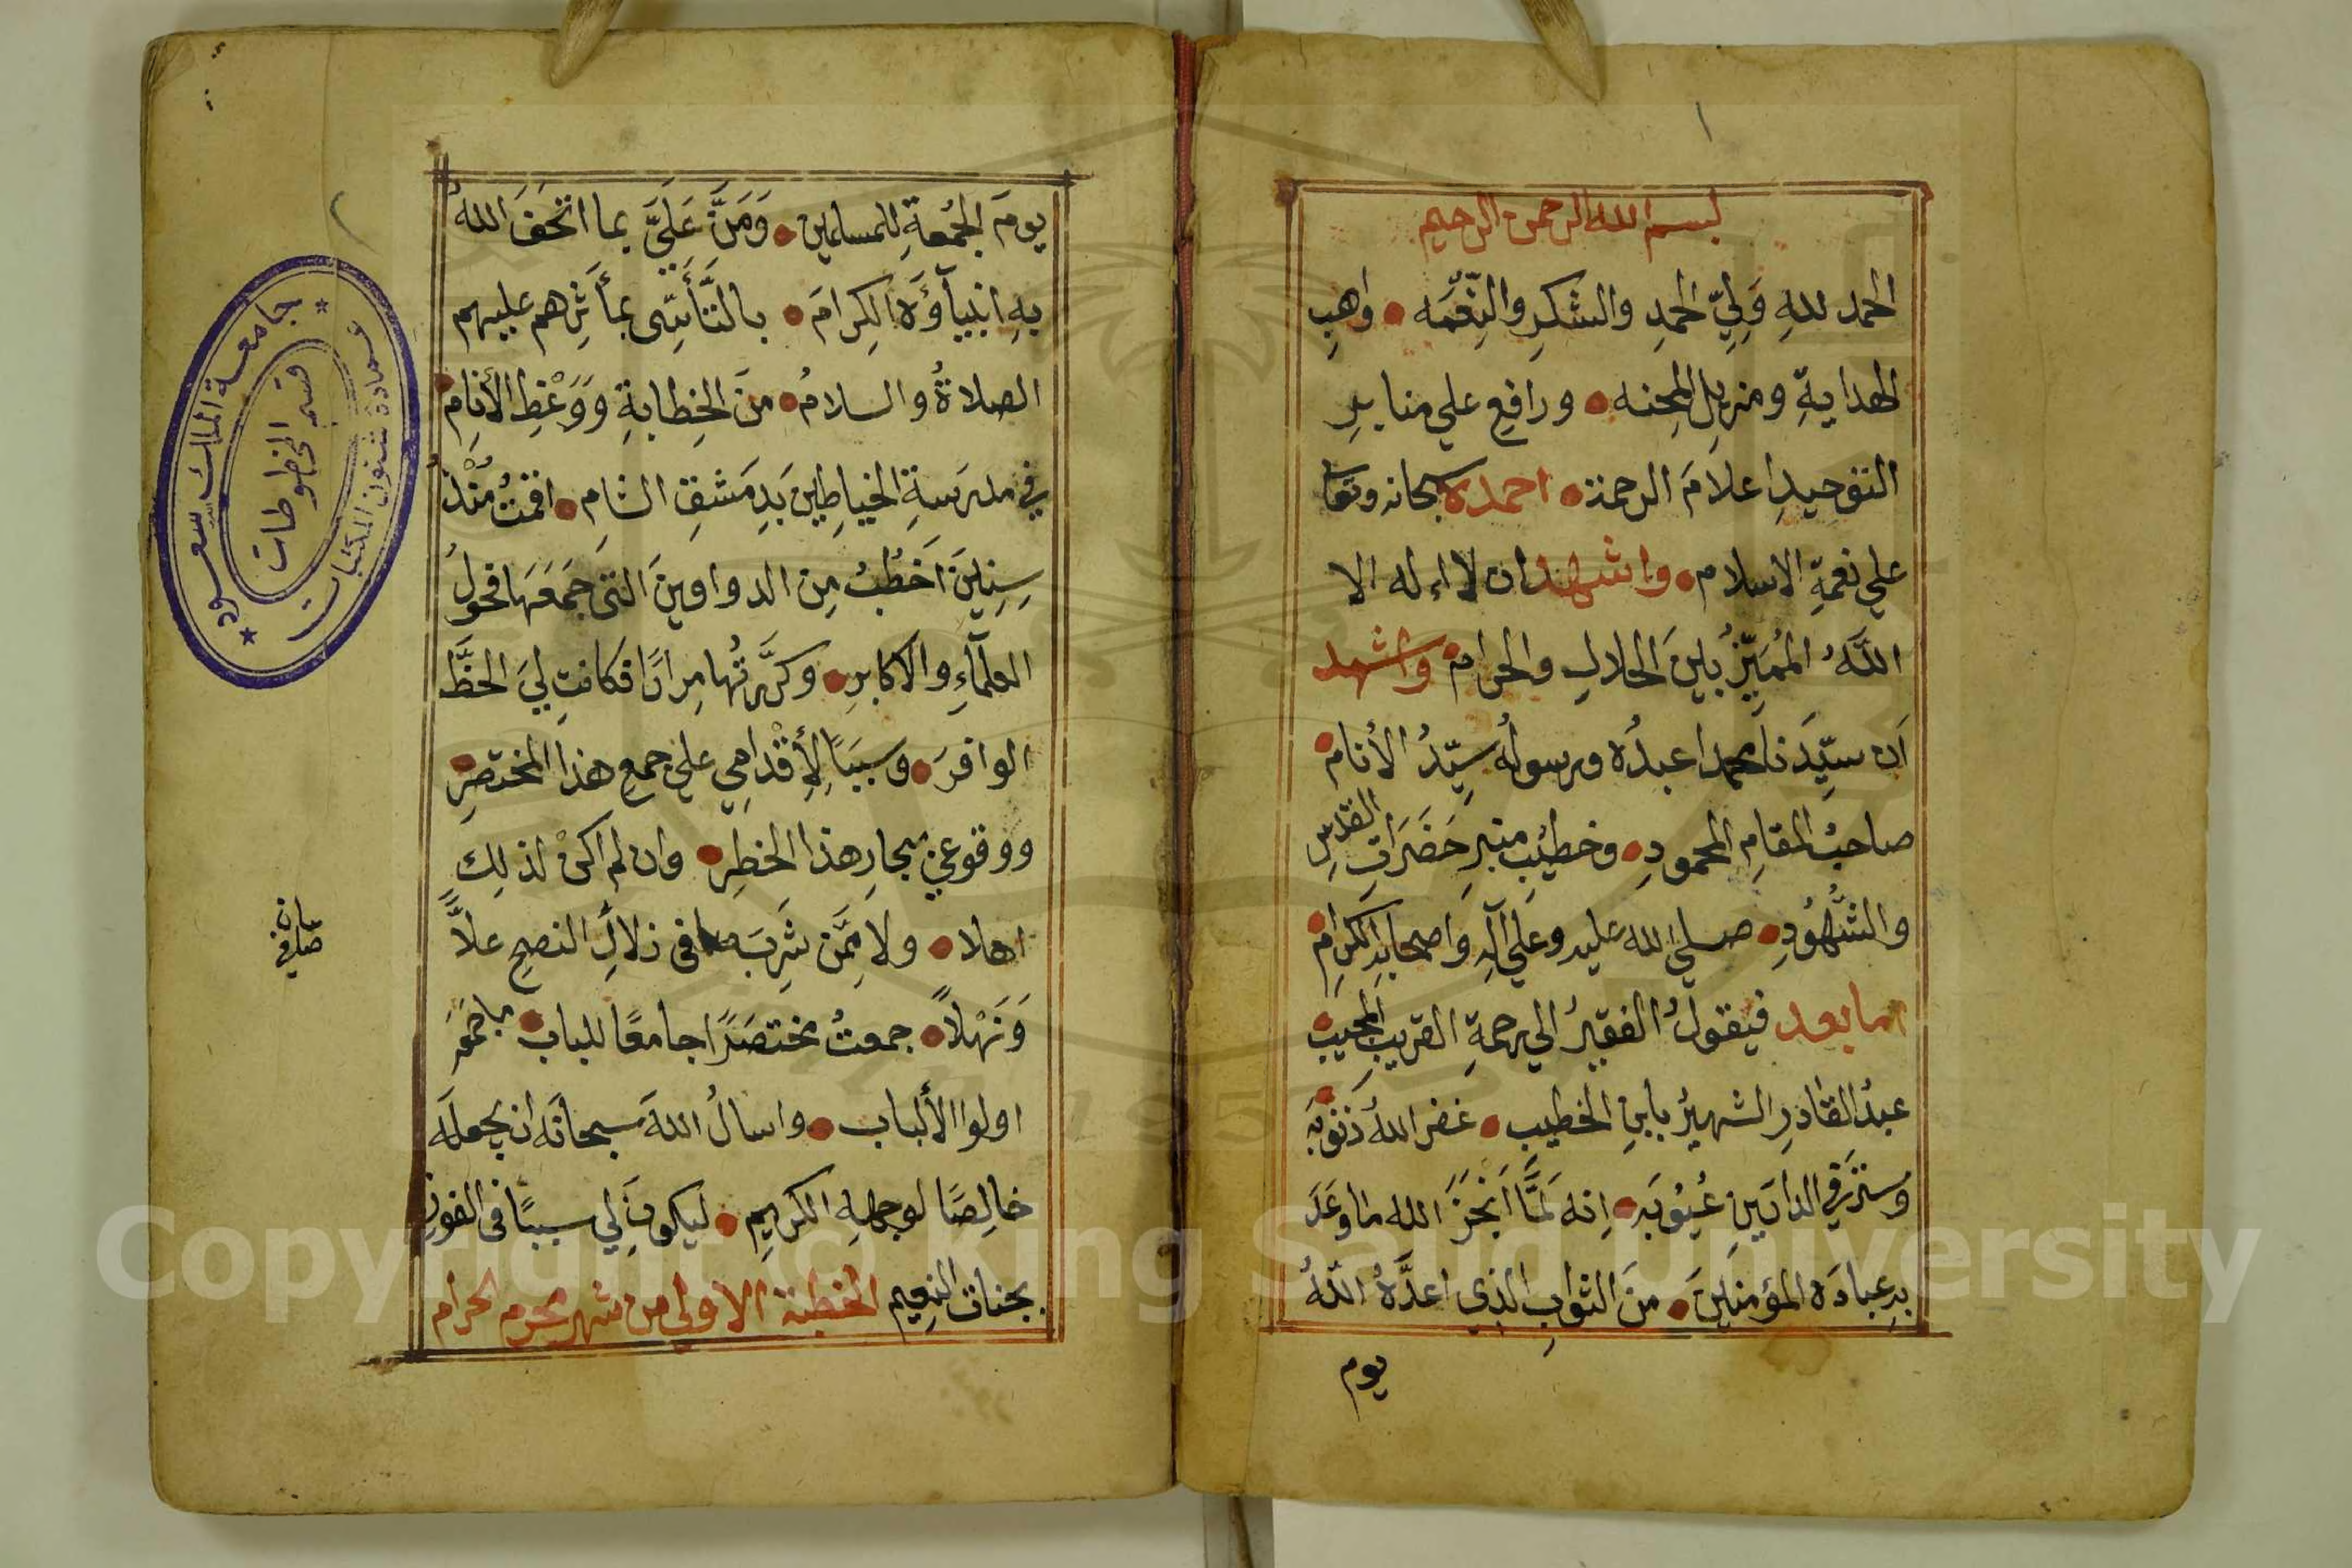 ١
بسم الله الرحمن الرحيم
الحمد للهِ وَلِيِّ الحمدِ والشكرِ والنِّعْمَه • واهبِ
الهدايةِ ومزيلِ المِحنه • ورافعِ علي منابرِ
التوحيدِ اعلامَ الرحمة • احمده سبحانه وتعا
علي نعمةِ الاسلام • واشهد ان لا اله الا
اللَّهُ المُمَيِّزُ بينَ الحلالِ والحرام • واشهد
اَن سيِّدَنا محمدا عبدُه ورسولُه سيِّدُ الأنام •
صاحبُ المقامِ المحمودِ • وخطيب منبرِ حَضَرَاتِ القدسِ
والشُّهُودِ • صلي الله عليه وعلي آلِه وَاصحابِه الكِرام •
اما بعد فيقولُ الفقيرُ الي رحمةِ القريبِ المجيب •
عبدُ القادرِ الشهيرُ بابنِ الخطيب • غفر اللهُ ذنوبَه •
وستر في الدارَينِ عُيُوبَه • اِنه لَمَّا اَنجَزَ الله ما وعَدَ
به عبادَه المؤمنينَ • منَ الثوابِ الذي اعدَّهُ اللهُ
يوم
يومَ الجُمعةِ للمسلمين • وَمَنَّ عَلَيَّ بما اتحَفَ اللهُ
بهِ انبيآؤَه الكِرامَ • بالتَّأسِّى بمأثِرهم عليهم
الصلاةُ والسلامُ • منَ الخِطابةِ وَوَعْظِ الأنامِ •
في مدرسةِ الخياطين بَدِمَشقِ الشامِ • اقمتُ مُنْذُ
سِنِينَ اَخطُبُ مِن الدواوينَ التى جَمَعَهَا فحولُ
العلمآءِ والاكابرِ • وكرَّرتُها مِرارًا فكانت لِيَ الحظَّ
الوافرَ • وسببًا لِأِقْدامِي علي جمعِ هذا المختصرِ •
ووقوعي ببحارِ هذا الخطِر • وان لم اكنْ لذلِكَ
اهلا • ولا مِمَّن شَرِبَ في زلالِ النصحِ علاًّ
وَنَهْلاً • جمعتُ مختصَرًا جامعًا للباب •
اولوا الألباب • واسالُ اللهَ سبحانَه ان يجعلَه
خالِصًا لوجهِهِ الكريم • ليكونَ لي سببًا في الفوزِ
بجنات النعيم الخطبة الاولى من شهر محرم الحرام
جامعة الملك سعود
عمادة شئون المكتبات
قسم المخطوطات
Copyright © King Saud University